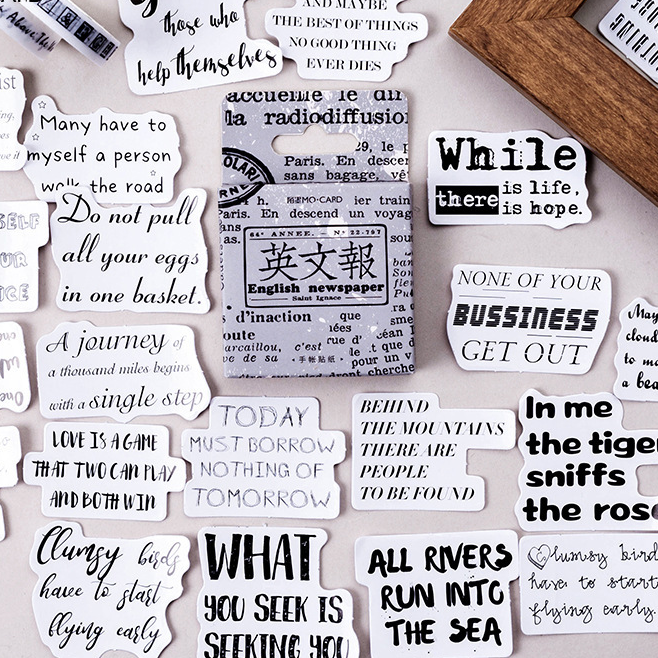 those who
help themselves
AND MAYBE
THE BEST OF THINGS
NO GOOD THING
EVER DIES
Many have to
myself a person
walk the road
Do not pull
all your eggs
in one basket.
A journey of
a thousand miles begins
with a single step
LOVE IS A GAME
THAT TWO CAN PLAY
AND BOTH WIN
TODAY
MUST BORROW
NOTHING OF
TOMORROW
Clumsy birds
have to start
flying early
WHAT
YOU SEEK IS
SEEKING YOU
accueille le dir
la radiodiffusion
29, le p
Paris. En descen
sans bagage, vê
MO·CARD
ier train
Paris. En descend un voyag
64e ANNEE. — No 22-797
英文報
English newspaper
Saint Ignace
d'inaction
que
lées
rue d'
céan I
oute
arcaillou, c'est
que d
ve de sa
·手帐贴纸·
pour un v
droit cherche
While
there is life,
is hope.
NONE OF YOUR
BUSSINESS
GET OUT
BEHIND
THE MOUNTAINS
THERE ARE
PEOPLE
TO BE FOUND
In me
the tige
sniffs
the rose
ALL RIVERS
RUN INTO
THE SEA
Clumsy bird
have to start
flying early.
May
cloud
to m
a bea